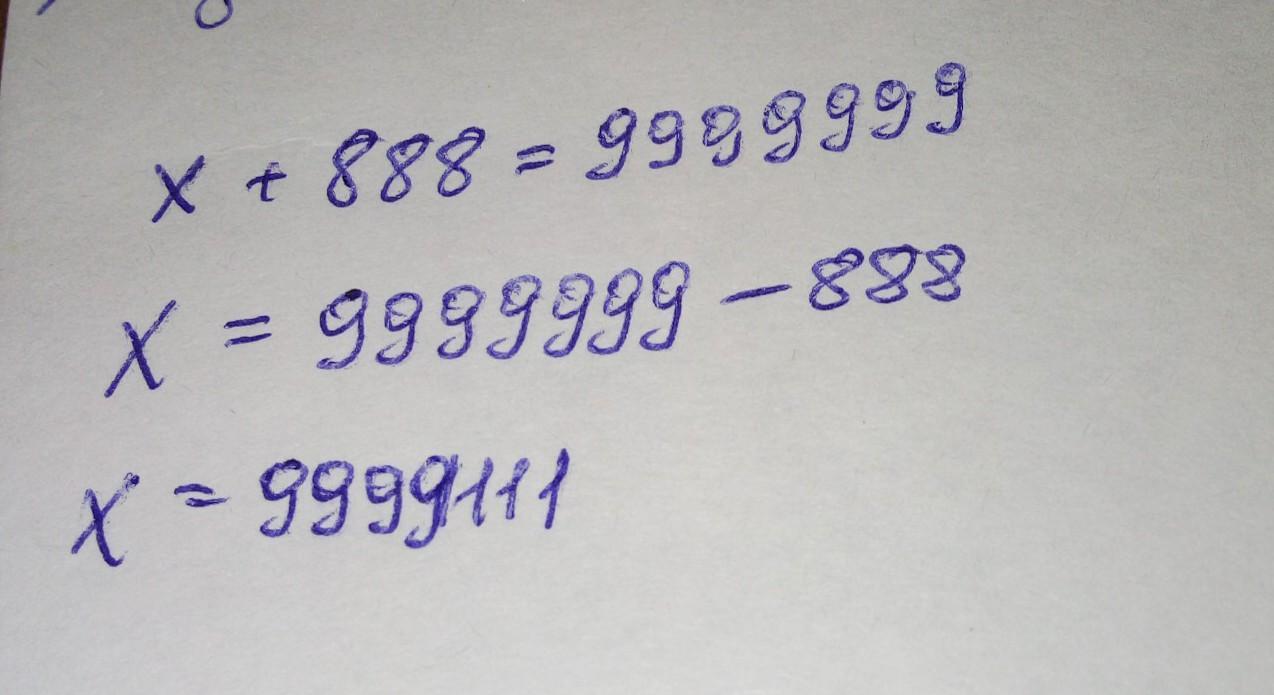 x + 888 = 9999999
x = 9999999 - 888
x = 9999111